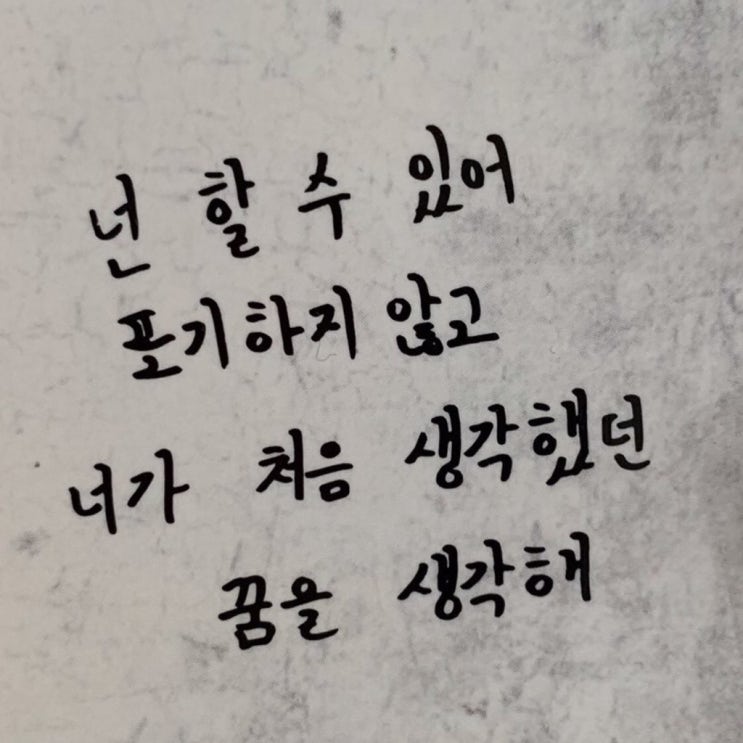 넌 할 수 있어
포기하지 않고
너가 처음 생각했던
꿈을 생각해